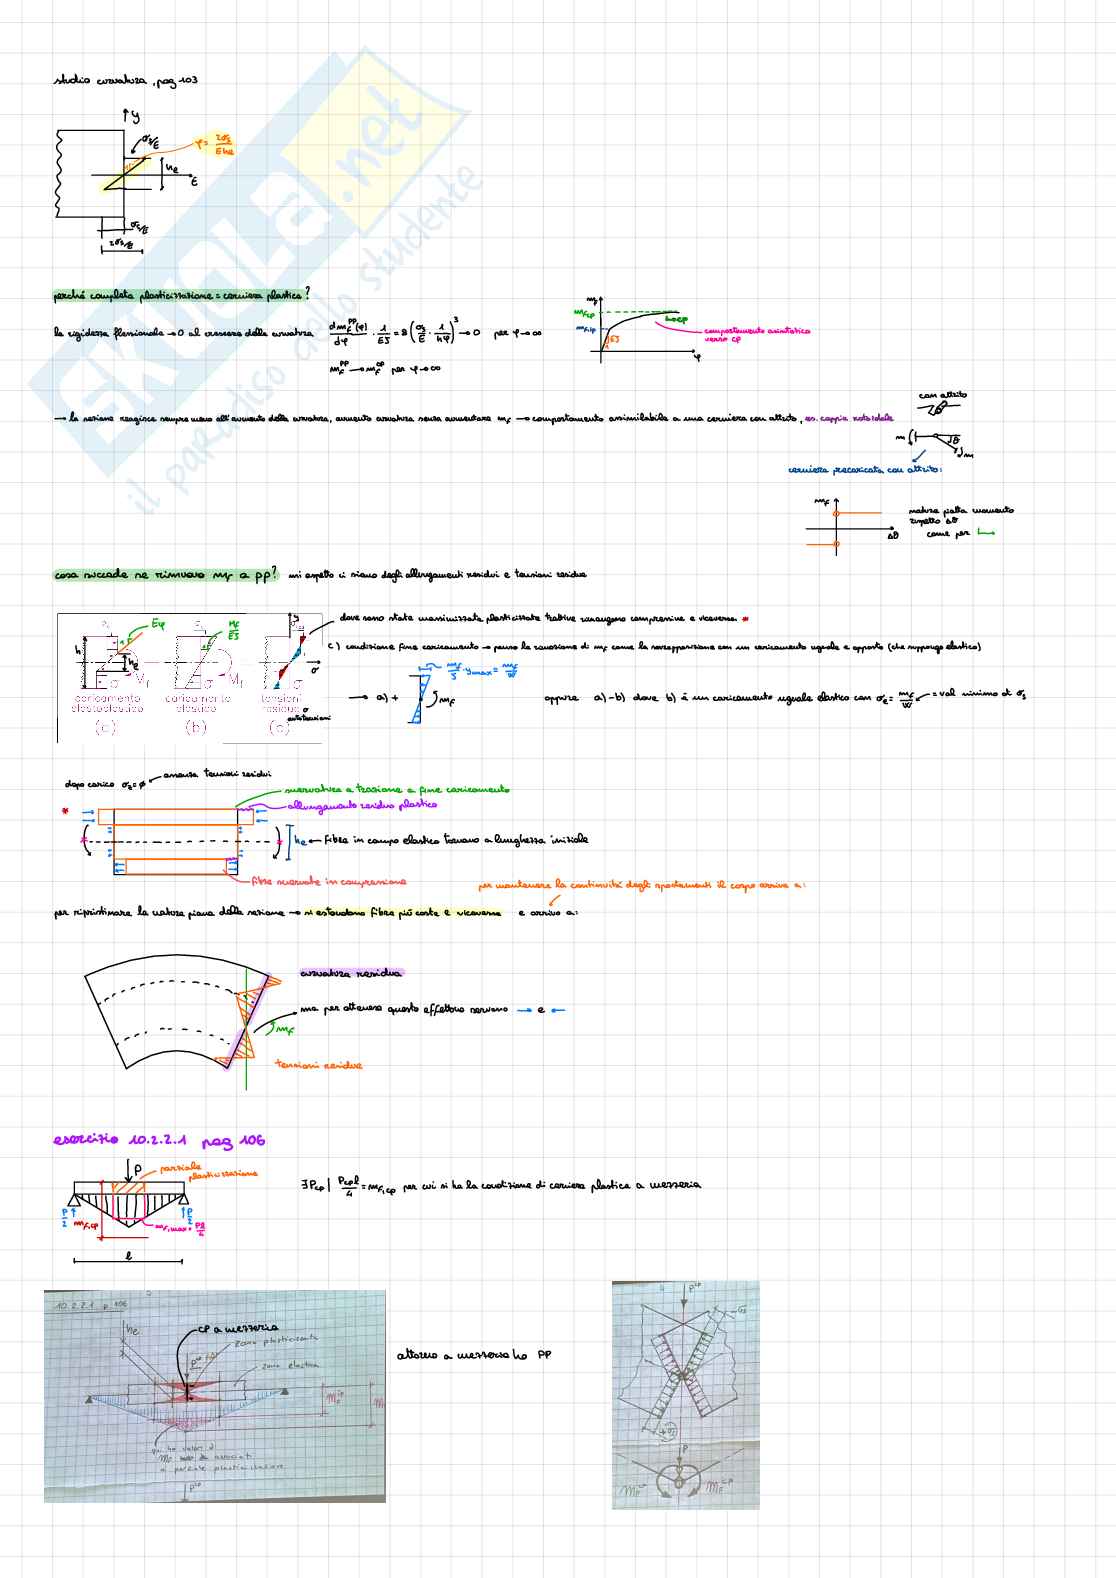 studio curvatura, pag 103
y
σs/E
φ = 2σs/Ehe
he
ε
σs/E
2σs/E
SKUOLA.net
il paradiso dello studente
perché completa plasticizzazione = cerniera plastica?
la rigidezza flessionale → 0 al crescere della curvatura dMf^PP(φ)/dφ · 1/EJ = 8(σs/E · 1/hφ)^3 → 0 per φ → ∞
Mf^PP → Mf^CP per φ → ∞
Mf
Mf,cp
Mf,ip
EJ
↳ cp
φ
comportamento asintotico
verso CP
→ la sezione reagisce sempre meno all'aumento della curvatura, aumento curvatura senza aumentare Mf → comportamento assimilabile a una cerniera con attrito, es. coppia rotoidale
con attrito
M
Δθ
M
cerniera precaricata con attrito:
Mf
Δθ
natura piatta momento
rispetto Δθ
come per
cosa succede se rimuovo Mf a pp? mi aspetto ci siano degli allungamenti residui e tensioni residue
Eφ
Mf/EJ
y
h
he
Mf
Mf
σ
σ
σ
caricamento
elastoplastico
(a)
caricamento
elastico
(b)
tensioni
residue
autotensioni
(c)
dove sono state massimizzate plasticizzate trattive rimangono compressive e viceversa *
c) condizione fine caricamento → penso la rimozione di Mf come la sovrapposizione con un caricamento uguale e opposto (che suppongo elastico)
→ a) +
Mf/J · ymax = Mf/W
Mf
oppure a) - b) dove b) è un caricamento uguale elastico con σe = Mf/W = val minimo di σs
dopo carico σz = ∅ assenza tensioni residui
snervatura a trazione a fine caricamento
allungamento residuo plastico
*
he ← fibre in campo elastico tornano a lunghezza iniziale
fibre snervate in compressione
per mantenere la continuità degli spostamenti il corpo arriva a:
per ripristinare la natura piana della sezione → si estendono fibre più corte e viceversa e arrivo a:
curvatura residua
ma per ottenere questo effettivo servono → e ←
Mf
tensioni residue
esercizio 10.2.2.1 pag 106
P
parziale
plasticizzazione
P/2
P/2
Mf,cp
l
∃ Pcp | Pcp l/4 = Mf,cp per cui si ha la condizione di cerniera plastica a mezzeria
10.2.2.1 p 106
he
CP a mezzeria
zona plasticizzata
zona elastica
Mf
qui ho valori di
Mf associati
a parziale plasticizzazione
P^CP
attorno a mezzeria ho PP
P^CP
-σs
+σs
P
Mf^CP
Mf^CP